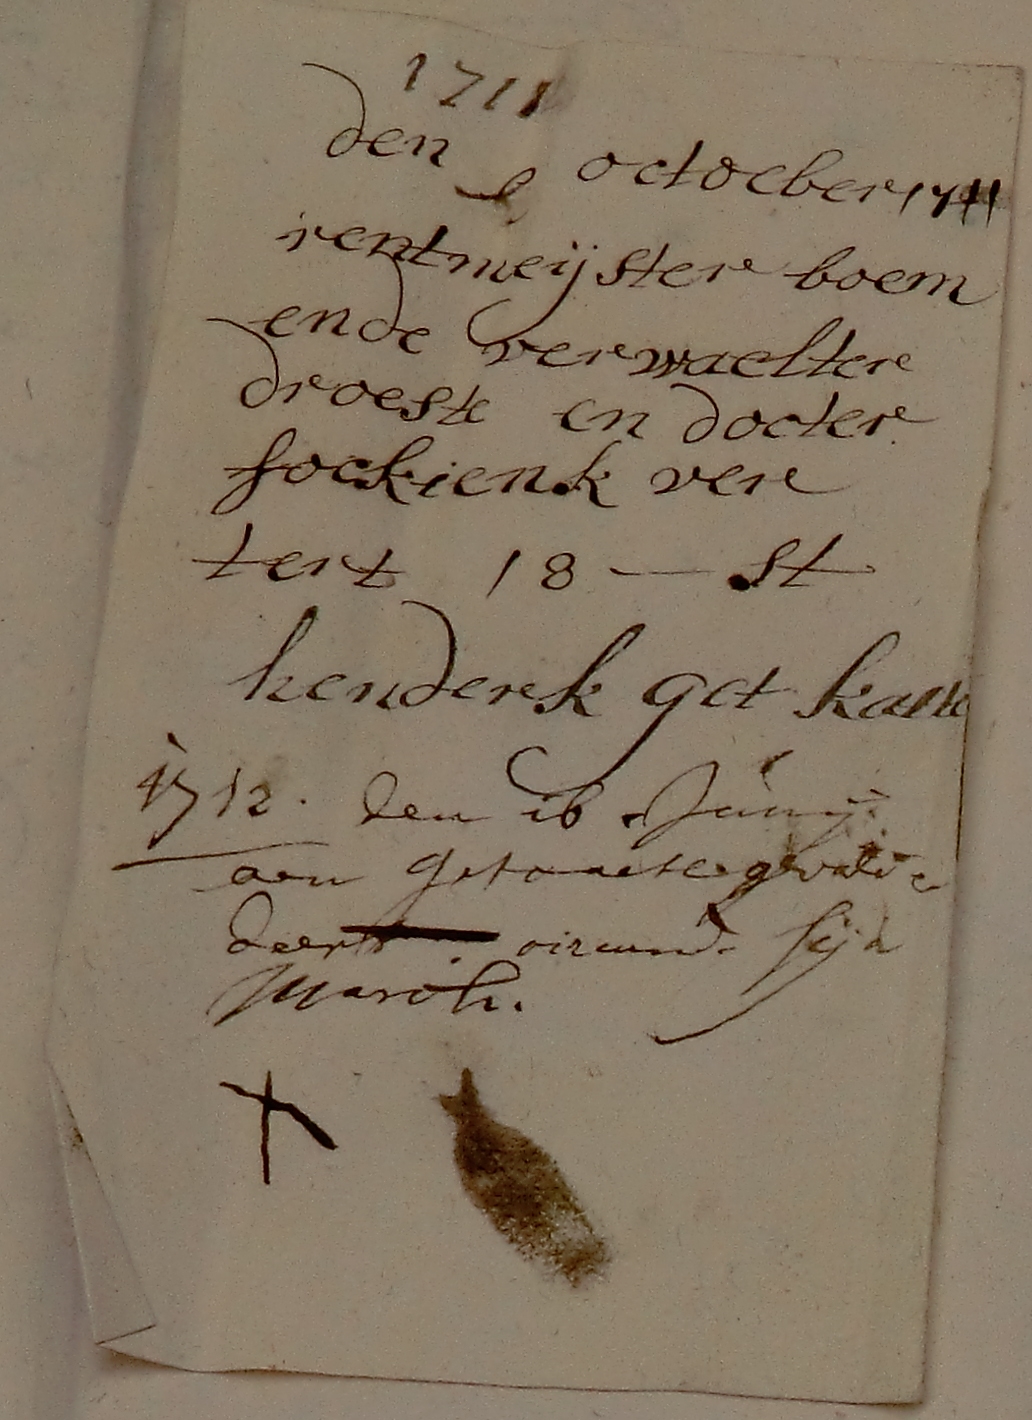 1711
den octoeber 1711
rentmeijster boem
ende verwaelter
droeste en docter
fockienk ver
tert 18 — st
henderk get kaete
1712. den 16 Junij
aen getkaete gevali-
deert sijn
March.